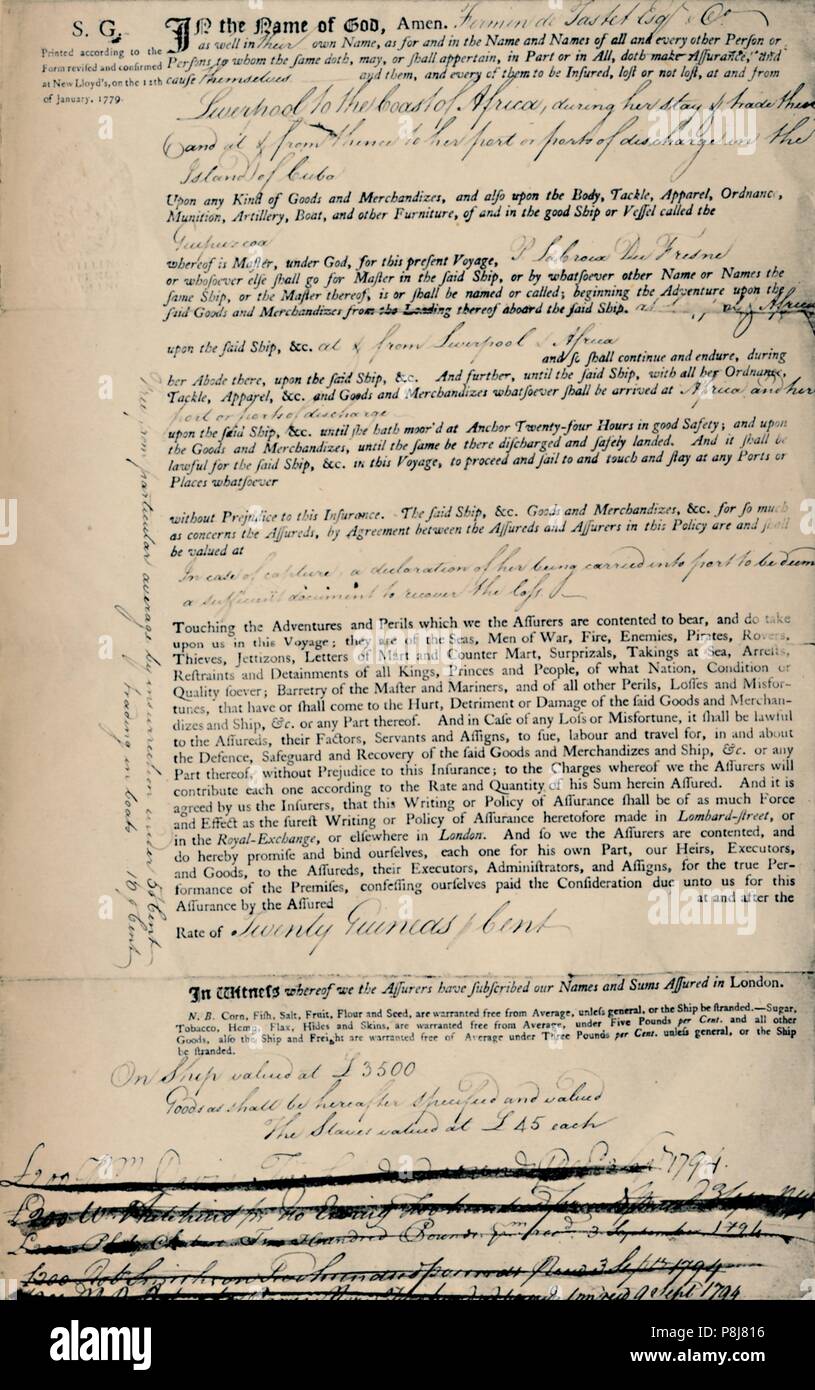 S. G.
Printed according to the
Form revised and confirmed
at New Lloyd's, on the 12th
of January, 1779.
IN the Name of God, Amen. Fermin de Tastet Esqr & Co
as well in their own Name, as for and in the Name and Names of all and every other Person or
Persons to whom the same doth, may, or shall appertain, in Part or in All, doth make Assurance, and
cause themselves and them, and every of them to be Insured, lost or not lost, at and from
Liverpool to the Coast of Africa, during her stay & trade there
and at & from thence to her port or ports of discharge in the
Island of Cuba
Upon any Kind of Goods and Merchandizes, and also upon the Body, Tackle, Apparel, Ordnance,
Munition, Artillery, Boat, and other Furniture, of and in the good Ship or Vessel called the
Guipuzcoa
whereof is Master, under God, for this present Voyage, P Labroix Du Fresne
or whosoever else shall go for Master in the said Ship, or by whatsoever other Name or Names the
same Ship, or the Master thereof, is or shall be named or called; beginning the Adventure upon the
said Goods and Merchandizes from the Loading thereof aboard the said Ship. at Africa
upon the said Ship, &c. at & from Liverpool & Africa
and so shall continue and endure, during
her Abode there, upon the said Ship, &c. And further, until the said Ship, with all her Ordnance,
Tackle, Apparel, &c. and Goods and Merchandizes whatsoever shall be arrived at Africa and her
port or ports of discharge
upon the said Ship, &c. until she hath moor'd at Anchor Twenty-four Hours in good Safety; and upon
the Goods and Merchandizes, until the same be there discharged and safely landed. And it shall be
lawful for the said Ship, &c. in this Voyage, to proceed and sail to and touch and stay at any Ports or
Places whatsoever
without Prejudice to this Insurance. The said Ship, &c. Goods and Merchandizes, &c. for so much
as concerns the Assureds, by Agreement between the Assureds and Assurers in this Policy are and shall
be valued at
In case of capture, a declaration of her being carried into port to be deem
a sufficient document to recover the loss.
Touching the Adventures and Perils which we the Assurers are contented to bear, and do take
upon us in this Voyage; they are of the Seas, Men of War, Fire, Enemies, Pirates, Rovers,
Thieves, Jettizons, Letters of Mart and Counter Mart, Surprizals, Takings at Sea, Arrests,
Restraints and Detainments of all Kings, Princes and People, of what Nation, Condition or
Quality soever; Barretry of the Master and Mariners, and of all other Perils, Losses and Misfor-
tunes, that have or shall come to the Hurt, Detriment or Damage of the said Goods and Merchan-
dizes and Ship, &c. or any Part thereof. And in Case of any Loss or Misfortune, it shall be lawful
to the Assureds, their Factors, Servants and Assigns, to sue, labour and travel for, in and about
the Defence, Safeguard and Recovery of the said Goods and Merchandizes and Ship, &c. or any
Part thereof, without Prejudice to this Insurance; to the Charges whereof we the Assurers will
contribute each one according to the Rate and Quantity of his Sum herein Assured. And it is
agreed by us the Insurers, that this Writing or Policy of Assurance shall be of as much Force
and Effect as the surest Writing or Policy of Assurance heretofore made in Lombard-street, or
in the Royal-Exchange, or elsewhere in London. And so we the Assurers are contented, and
do hereby promise and bind ourselves, each one for his own Part, our Heirs, Executors,
and Goods, to the Assureds, their Executors, Administrators, and Assigns, for the true Per-
formance of the Premises, confessing ourselves paid the Consideration due unto us for this
Assurance by the Assured at and after the
Rate of Twenty Guineas p Cent
Free from particular average by insurrection under 5 p Cent
trading in boats 10 p Cent
In Witness whereof we the Assurers have subscribed our Names and Sums Assured in London.
N. B. Corn, Fish, Salt, Fruit, Flour and Seed, are warranted free from Average, unless general, or the Ship be stranded.—Sugar,
Tobacco, Hemp, Flax, Hides and Skins, are warranted free from Average, under Five Pounds per Cent. and all other
Goods, also the Ship and Freight are warranted free of Average under Three Pounds per Cent. unless general, or the Ship
be stranded.
On Ship valued at £3500
Goods as shall be hereafter specified and valued
The Slaves valued at £45 each
£200 1794.
£200
Two Hundred Pounds 3 September 1794
£200 Two hundred pounds 3 Sepr 1794
9 Sept 1794
alamy
Image ID: P8J816
www.alamy.com